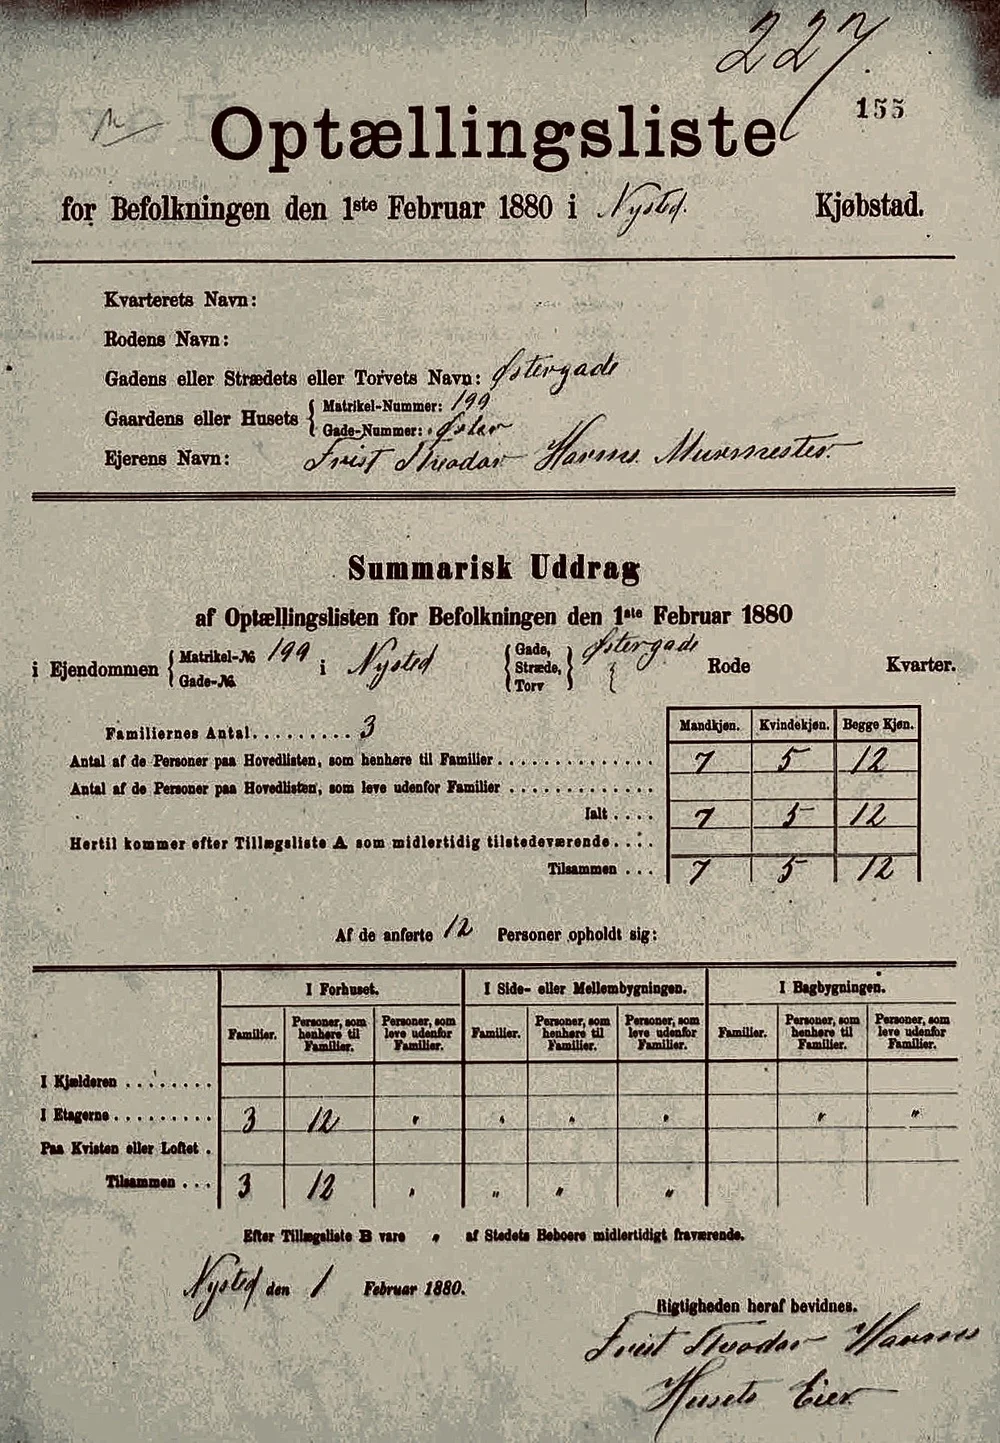 227
155
Optællingsliste
for Befolkningen den 1ste Februar 1880 i Nysted. Kjøbstad.
Kvarterets Navn:
Rodens Navn:
Gadens eller Strædets eller Torvets Navn: Østergade
Gaardens eller Husets { Matrikel-Nummer: 199
Gade-Nummer: Øster
Ejerens Navn: Frist Theodor Harms. Murmester.
Summarisk Uddrag
af Optællingslisten for Befolkningen den 1ste Februar 1880
i Ejendommen { Matrikel-№ 199 i Nysted { Gade, } Østergade Rode Kvarter.
Gade-№ Stræde,
Torv
Mandkjøn. Kvindekjøn. Begge Kjøn.
Familiernes Antal......... 3
Antal af de Personer paa Hovedlisten, som henhøre til Familier .............. 7 5 12
Antal af de Personer paa Hovedlisten, som leve udenfor Familier .............
Ialt .... 7 5 12
Hertil kommer efter Tillægsliste A som midlertidig tilstedeværende....
Tilsammen ... 7 5 12
Af de anførte 12 Personer opholdt sig:
I Forhuset. I Side- eller Mellembygningen. I Bagbygningen.
Familier. Personer, som henhøre til Familier. Personer, som leve udenfor Familier. Familier. Personer, som henhøre til Familier. Personer, som leve udenfor Familier. Familier. Personer, som henhøre til Familier. Personer, som leve udenfor Familier.
I Kjælderen ........
I Etagerne ......... 3 12 " " " " " "
Paa Kvisten eller Loftet .
Tilsammen ... 3 12 " " " "
Efter Tillægsliste B vare " af Stedets Beboere midlertidigt fraværende.
Nysted den 1 Februar 1880.
Rigtigheden heraf bevidnes.
Frist Theodor Harms
Husets Eier